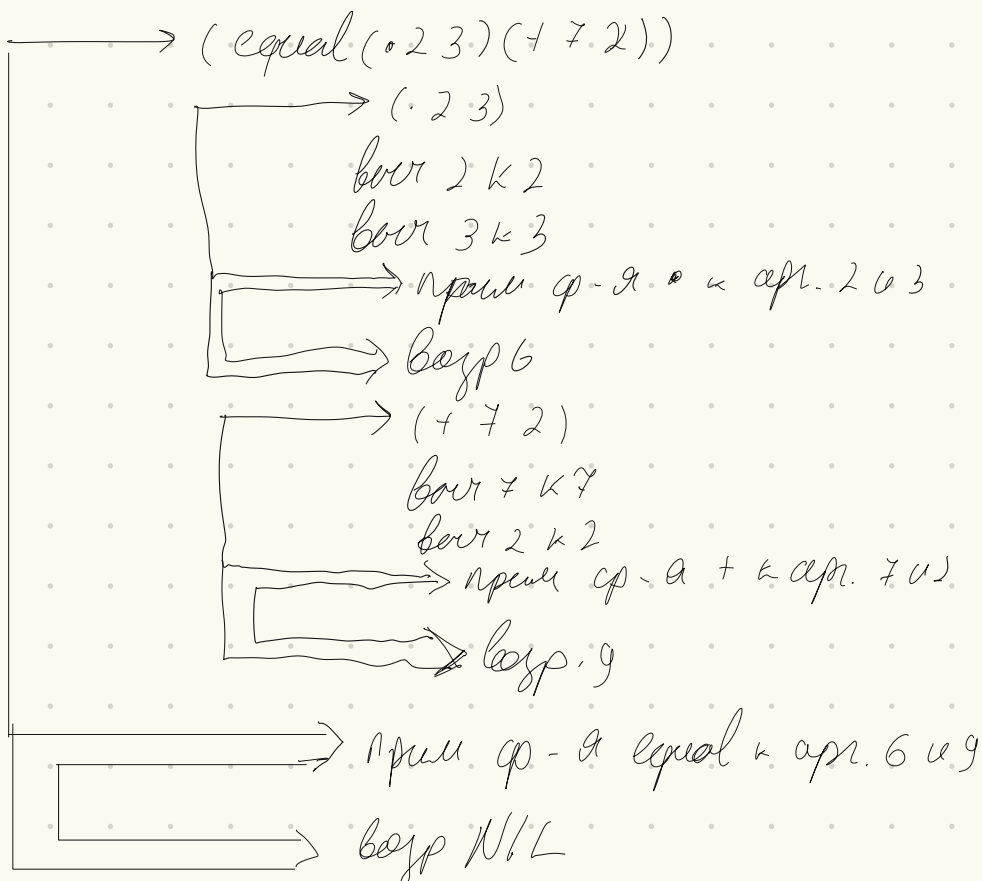 (equal (• 2 3) (+ 7 2))
(• 2 3)
выч 2 к 2
выч 3 к 3
прим ф-я • к арг. 2 и 3
возвр 6
(+ 7 2)
выч 7 к 7
выч 2 к 2
прим ф-я + к арг. 7 и 2
возвр. 9
прим ф-я equal к арг. 6 и 9
возвр NIL